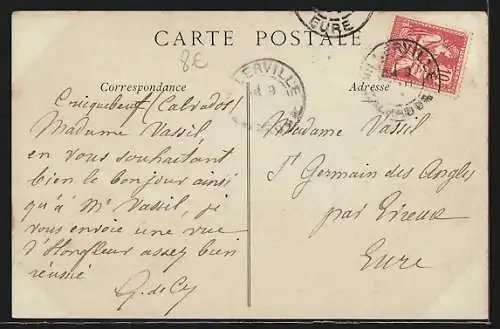 EURE
CARTE POSTALE
8€
VILLERVILLE
CALVADOS
10
Correspondance
Adresse
Cricquebeuf (Calvados)
Madame Vassil,
en vous souhaitant
bien le bonjour ainsi
qu'à Mr Vassil, je
vous envoie une vue
d'Honfleur assez bien
réussie
G. de Cy
Madame Vassil
St Germain des Angles
par Evreux
Eure